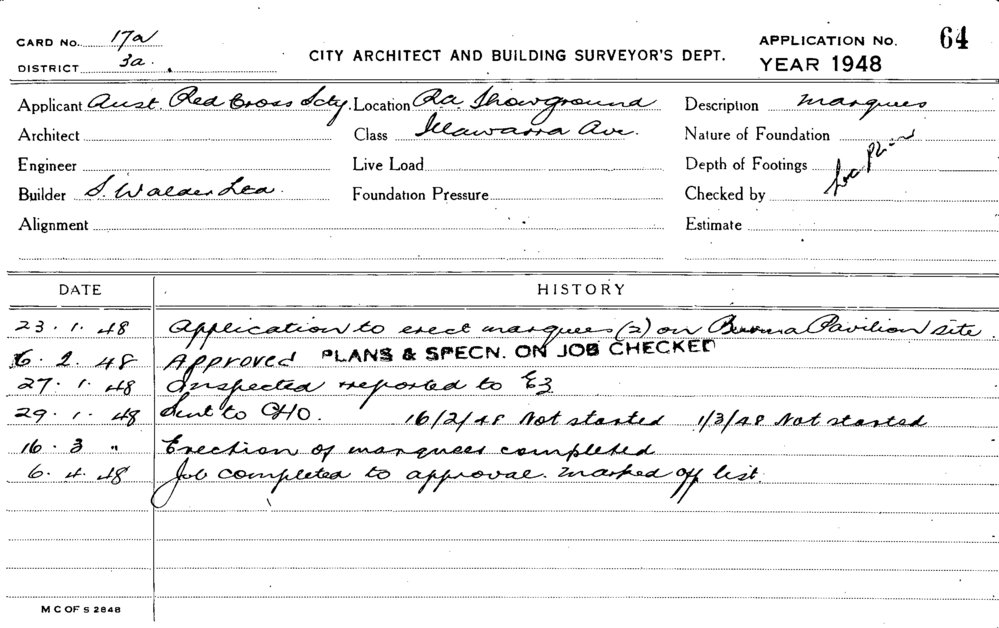 CARD No. 17a
DISTRICT 3a.
CITY ARCHITECT AND BUILDING SURVEYOR'S DEPT.
APPLICATION No. 64
YEAR 1948
Applicant Aust Red Cross Scty. Location RA Showground Description marquees
Architect Class Illawarra Ave. Nature of Foundation
Engineer Live Load Depth of Footings see plan
Builder S. Walder Foundation Pressure Checked by
Alignment Estimate
DATE HISTORY
23.1.48 Application to erect marquees (2) on Burma Pavilion site
6.2.48 Approved PLANS & SPECN. ON JOB CHECKED
27.1.48 Inspected & reported to
29.1.48 Sent to CHO. 16/2/48 Not started 1/3/48 Not started
16.3 " Erection of marquees completed
6.4.48 Job completed to approval. Marked off list.
M C OF S 2848